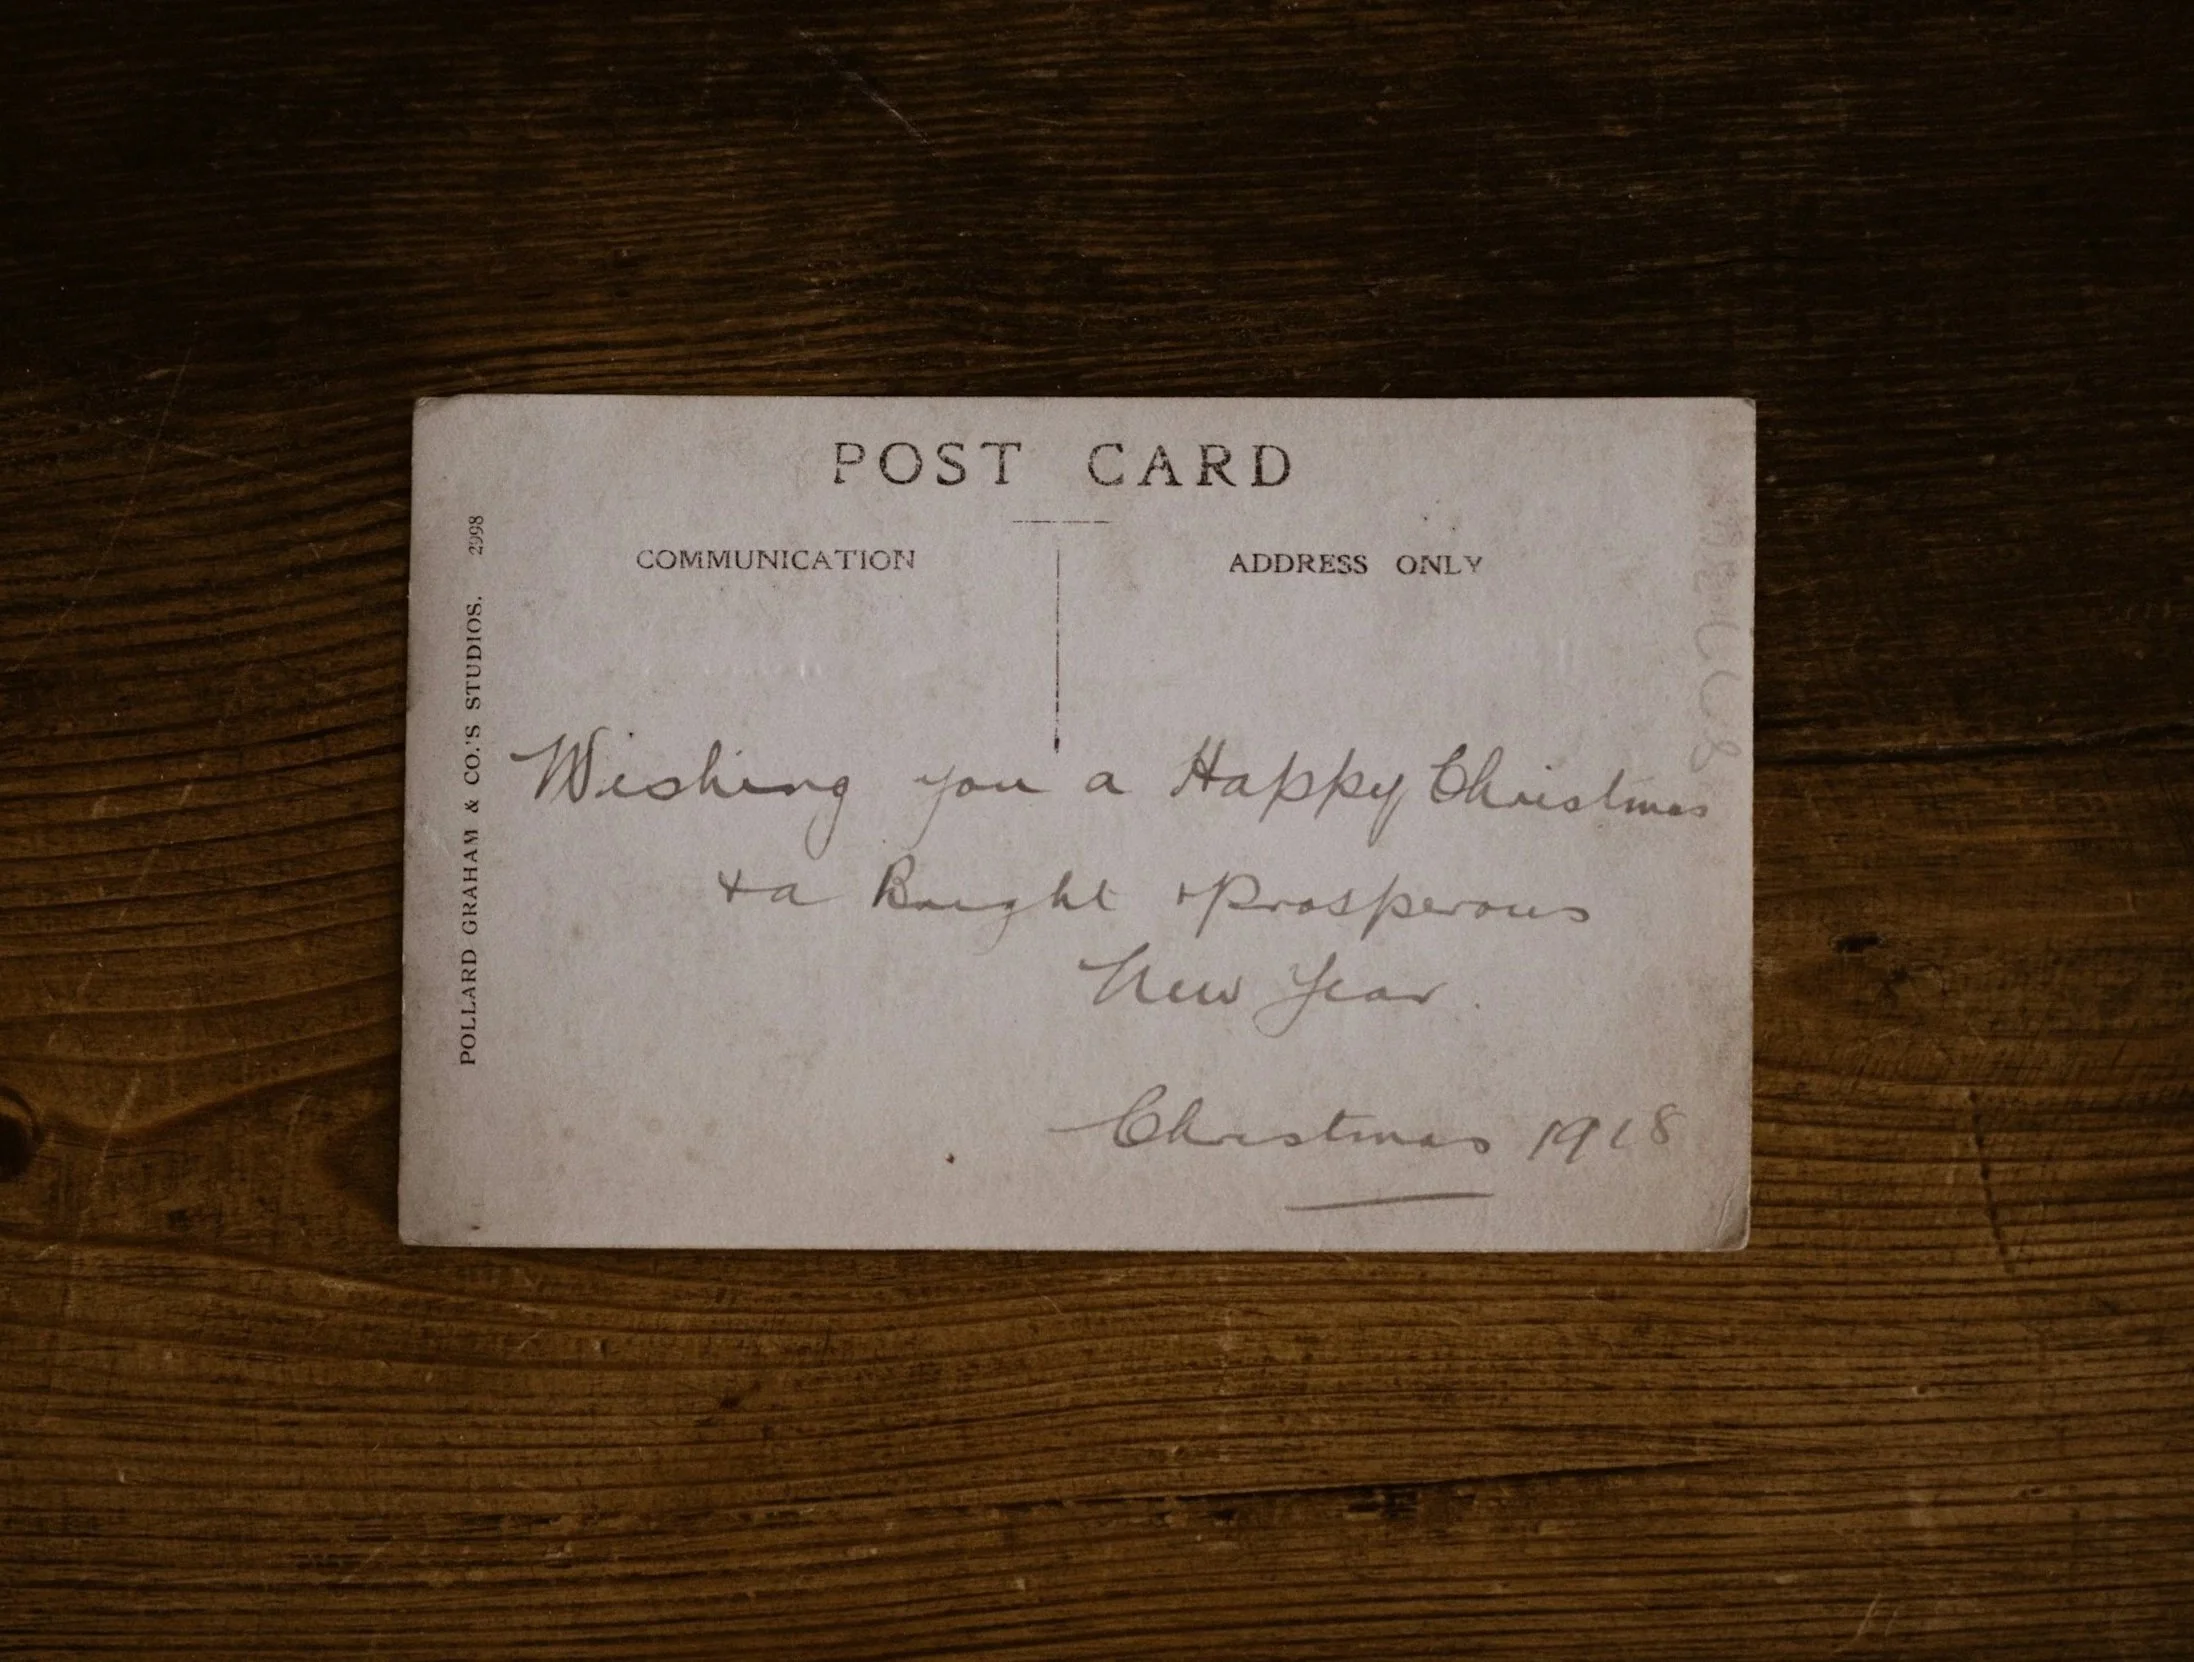 POST CARD
COMMUNICATION
ADDRESS ONLY
POLLARD GRAHAM & CO.'S STUDIOS. 2998
Wishing you a Happy Christmas
+ a Bright + Prosperous
New Year.
Christmas 1918